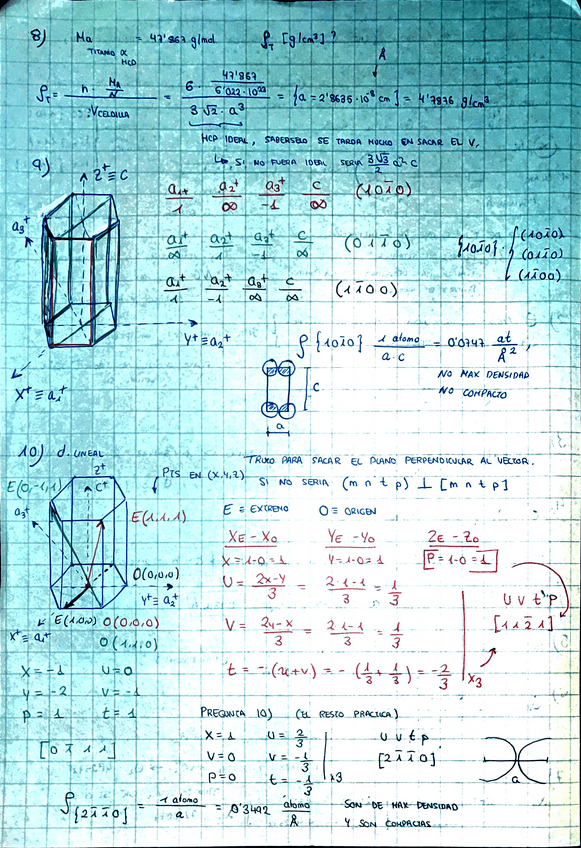 8) Ma = 47'867 g/mol ρT [g/cm³] ?
TITANIO α
HCD
Å
ρT = n · MA/N / VCELDILLA = 6 · 47'867/6'022·10²³ / 3√2 · a³ = {a = 2'8635·10⁻⁸ cm} = 4'7876 g/cm³
HCP IDEAL, SABERSELO SE TARDA MUCHO EN SACAR EL V.
↳ SI NO FUERA IDEAL SERIA 3√3/2 a² c
9)
Z⁺ ≡ C
a₃⁺
Y⁺ ≡ a₂⁺
X⁺ ≡ a₁⁺
a₁⁺/1 a₂⁺/∞ a₃⁺/-1 c/∞ (101̄0)
a₁⁺/∞ a₂⁺/1 a₃⁺/-1 c/∞ (011̄0)
a₁⁺/1 a₂⁺/-1 a₃⁺/∞ c/∞ (11̄00)
{101̄0} = { (101̄0)
(011̄0)
(11̄00)
ρ{101̄0} 1 atomo / a·c = 0'0747 at/Å²,
NO MAX DENSIDAD
NO COMPACTO
C
a
10) d. LINEAL
TRUCO PARA SACAR EL PLANO PERPENDICULAR AL VECTOR.
PTS EN (X,Y,Z)
SI NO SERIA (m n t p) ⊥ [m n t p]
Z⁺
C⁺
E(0,-1,1)
a₃⁺
E(1,1,1)
O(0,0,0)
Y⁺ ≡ a₂⁺
E(1,0,0) O(0,0,0)
X⁺ ≡ a₁⁺
O(1,1,0)
E = EXTREMO O = ORIGEN
XE - XO YE - YO ZE - ZO
X = 1-0 = 1 Y = 1-0 = 1 P = 1-0 = 1
U = 2x-y/3 = 2·1-1/3 = 1/3
V = 2y-x/3 = 2·1-1/3 = 1/3
t = -(u+v) = -(1/3 + 1/3) = -2/3
x3
U V t P
[1 1 2̄ 1]
X = -1 U = 0
Y = -2 V = -1
P = 1 t = 1
[0 1̄ 1 1]
PREGUNTA 10) (EL RESTO PRACTICA)
X = 1 U = 2/3
V = 0 V = -1/3
P = 0 t = -1/3
x3
U V t P
[2 1̄ 1̄ 0]
a
ρ{21̄1̄0} = 1 atomo / a = 0'3492 atomo/Å
SON DE MAX DENSIDAD
Y SON COMPACTAS